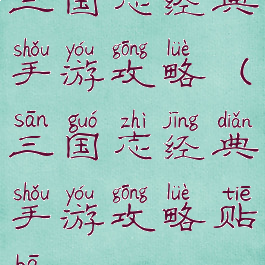 三国志经典
shǒu yóu gōng lüè
手游攻略（
sān guó zhì jīng diǎn
三国志经典
shǒu yóu gōng lüè tiē
手游攻略贴
bā